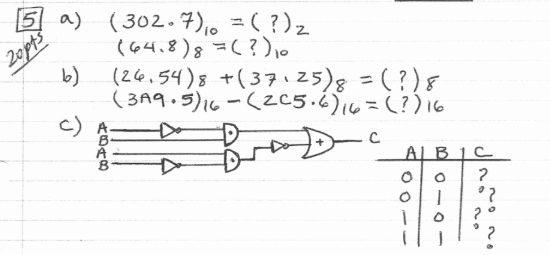 5 a) (302.7)10 = (?)2
20pts (64.8)8 = (?)10
b) (26.54)8 + (37.25)8 = (?)8
(3A9.5)16 - (2C5.6)16 = (?)16
c) A
B
A
B
+ C
A B C
0 0 ?
0 1 ?
1 0 ?
1 1 ?